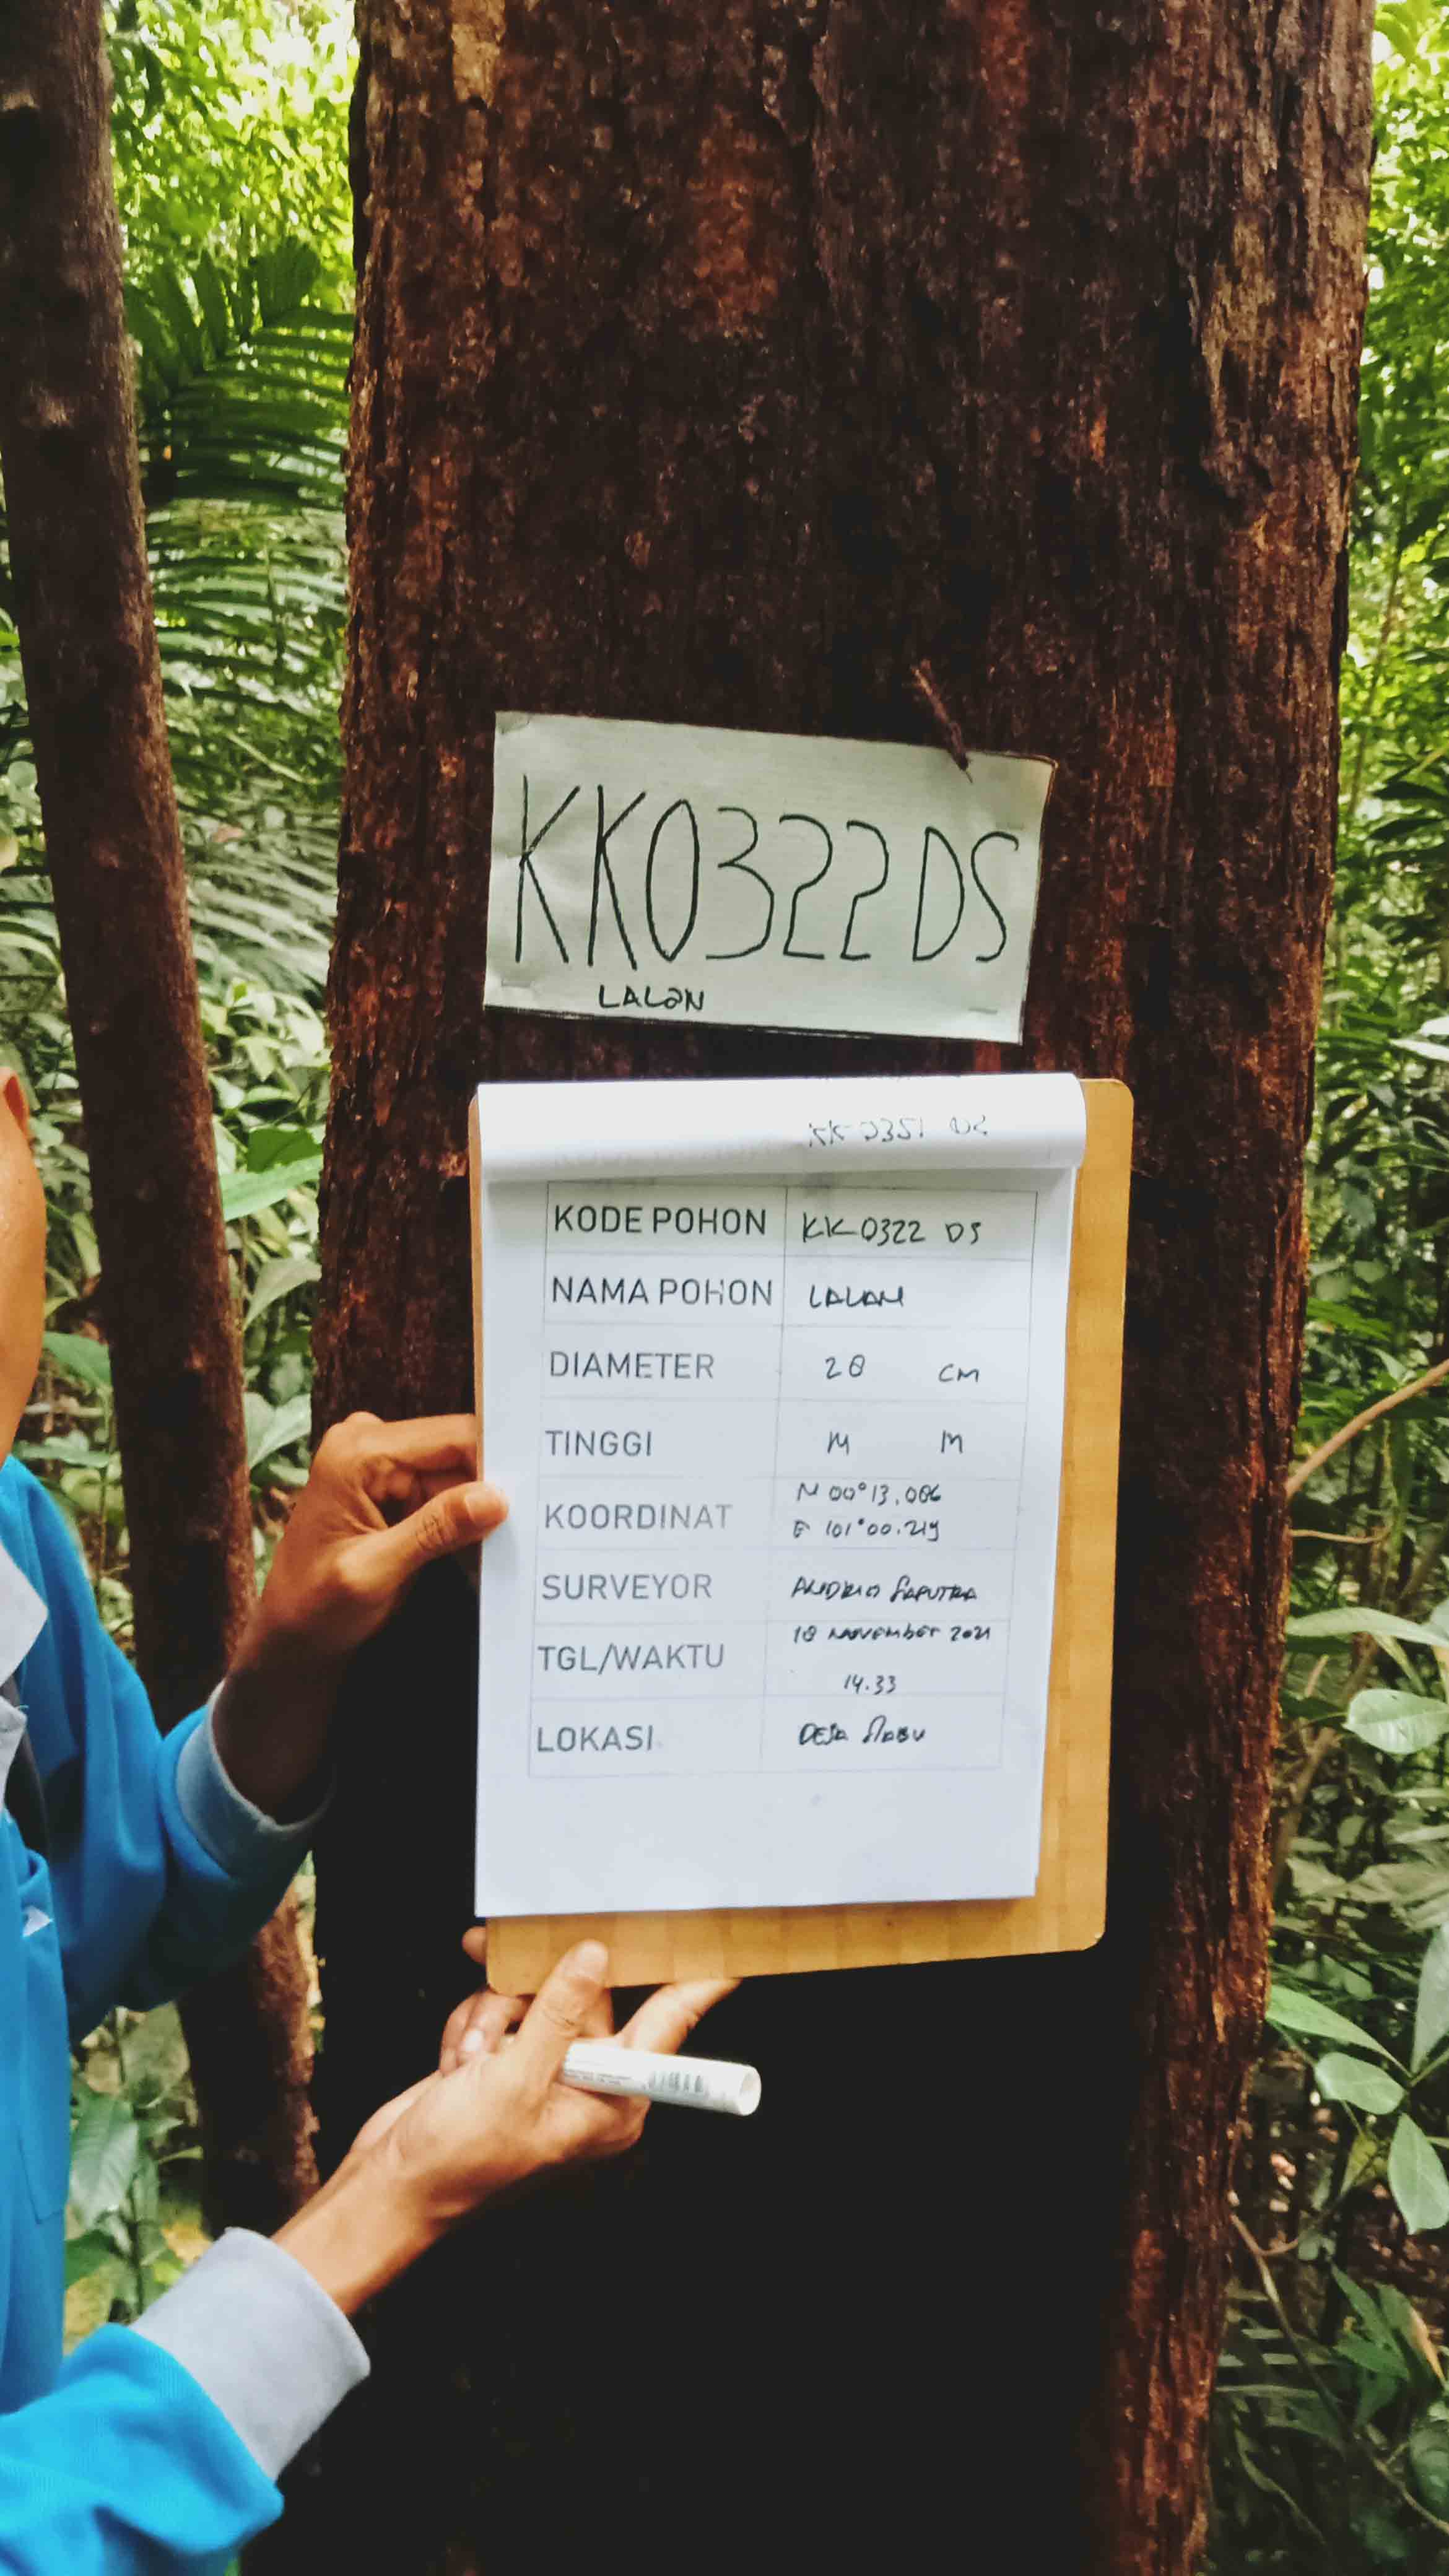 KK0322DS
LALAN
KODE POHON KK0322 DS
NAMA POHON LALAN
DIAMETER 28 CM
TINGGI M
KOORDINAT N 00°13.086
E 101°00.219
SURVEYOR SAPUTRA
TGL/WAKTU 18 NOVEMBER 2021
14.33
LOKASI DESA